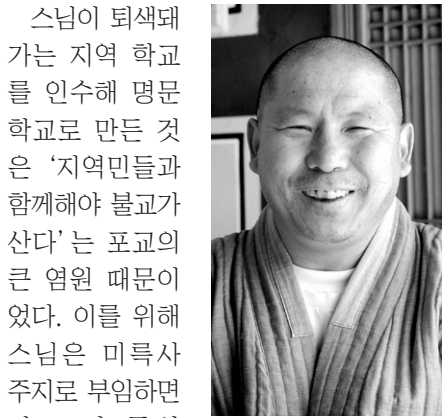 스님이 퇴색돼
가는 지역 학교
를 인수해 명문
학교로 만든 것
은 ‘지역민들과
함께해야 불교가
산다’는 포교의
큰 염원 때문이
었다. 이를 위해
스님은 미륵사
주지로 부임하면